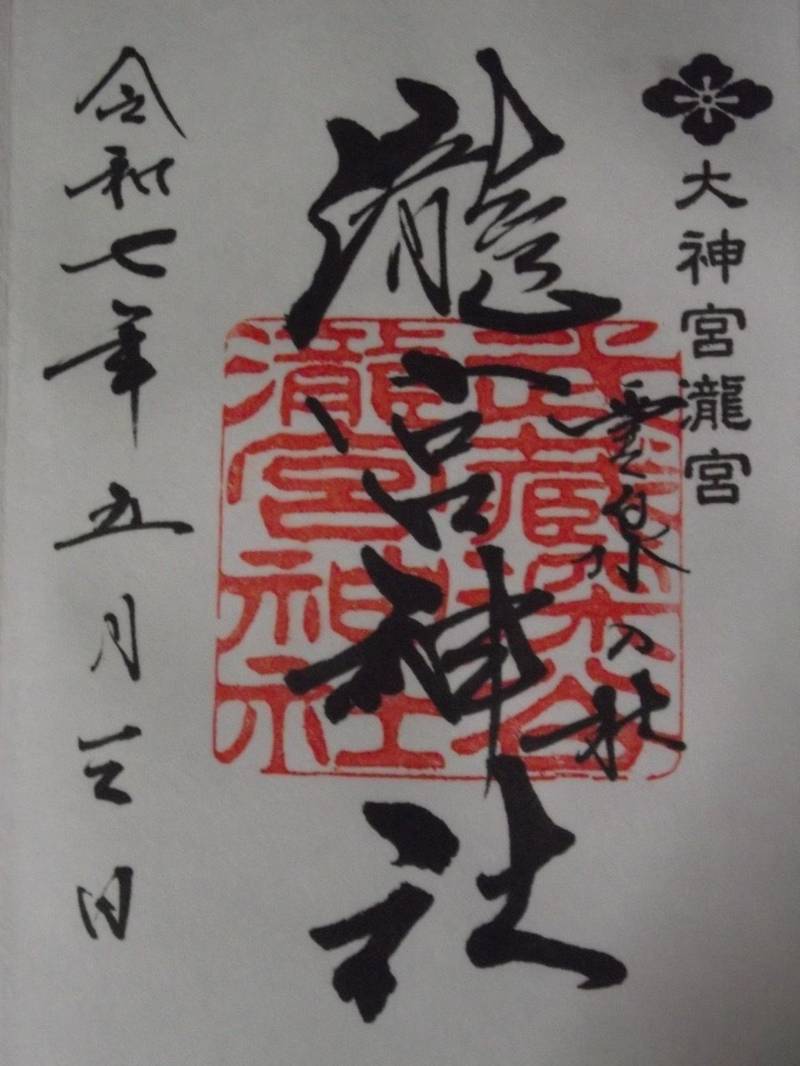 大神宮瀧宮
霊泉の社
瀧宮神社
武蔵深谷
瀧宮神社
令和七年五月三日